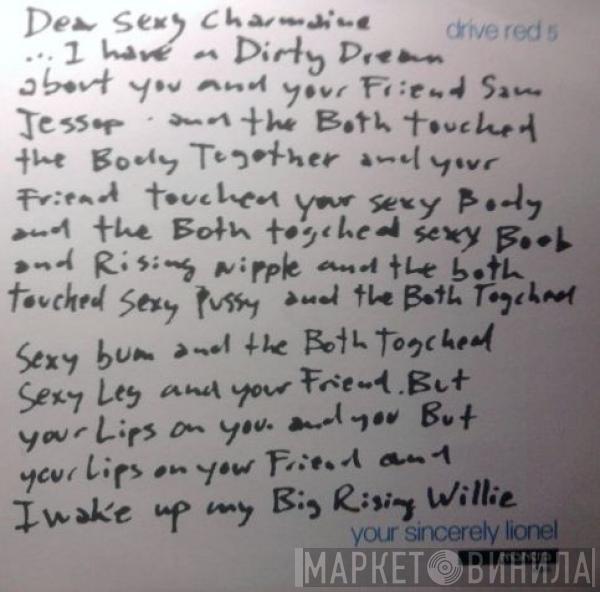 Dear Sexy Charmaine
drive red 5
... I have a Dirty Dream
about you and your Friend Sam
Jessop. and the Both touched
the Body Together and your
Friend touched your sexy Body
and the Both togched sexy Boob
and Rising nipple and the both
touched Sexy Pussy and the Both Togched
Sexy bum and the Both Togched
Sexy Leg and your Friend. But
your Lips on you. and you But
your Lips on your Friend and
I wake up my Big Rising Willie
your sincerely lionel
МАРКЕТ ВИНИЛА